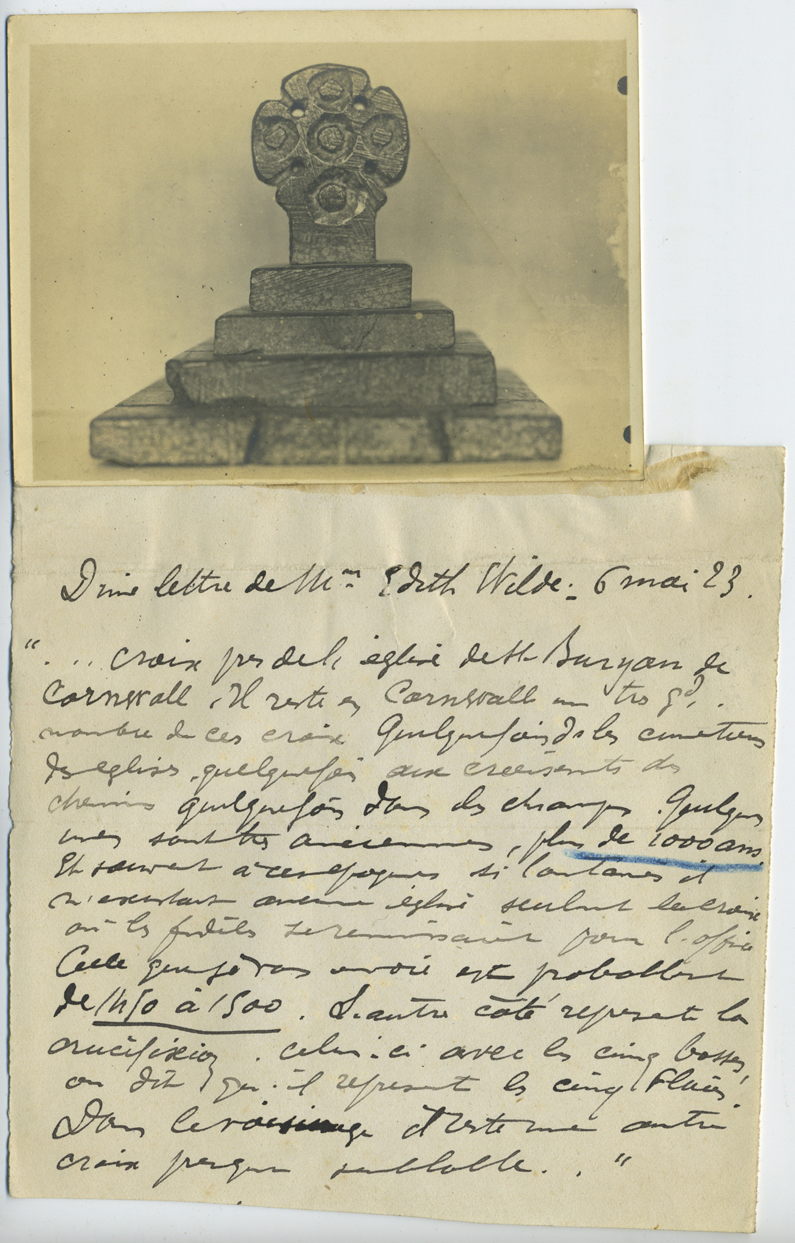 D'une lettre de Mme Edith Wilde - 6 mai 23.
"... croix près de l'église de St Buryan de
Cornwall. Il reste en Cornwall un très gd.
nombre de ces croix Quelquefois ds les cimetières
des églises, quelquefois aux croisements des
chemins quelquefois dans des champs. Quelques
unes sont très anciennes, plus de 1000 ans.
Et souvent à ces époques si lointaines il
n'existait aucune église seulement la croix
où les fidèles se réunissaient pour l'office
Celle que je vous envoie est probablement
de 1450 à 1500. L'autre côté représente la
crucifixion. celui-ci avec les cinq bosses,
on dit qu'il représente les cinq Plaies.
Dans le voisinage il reste une autre
croix presque semblable..."